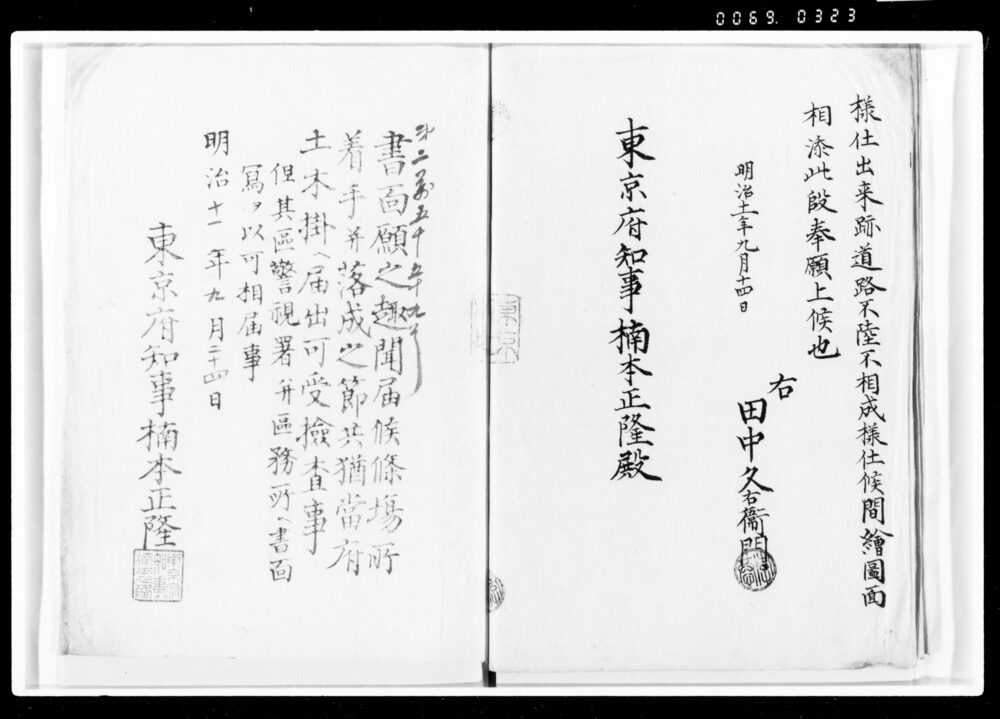 0069. 0323
様仕出来跡道路不陸不相成様仕候間繪圖面
相添此段奉願上候也
明治十一年九月十四日
右
田中久右衞門
東京府知事楠本正隆殿
第二万五千
書面願之趣聞届候條場所
着手并落成之節共猶當府
土木掛ヘ届出可受撿査事
但其區警視署并區務所ヘ書面
寫ヲ以可相届事
明治十一年九月二十四日
東京府知事楠本正隆